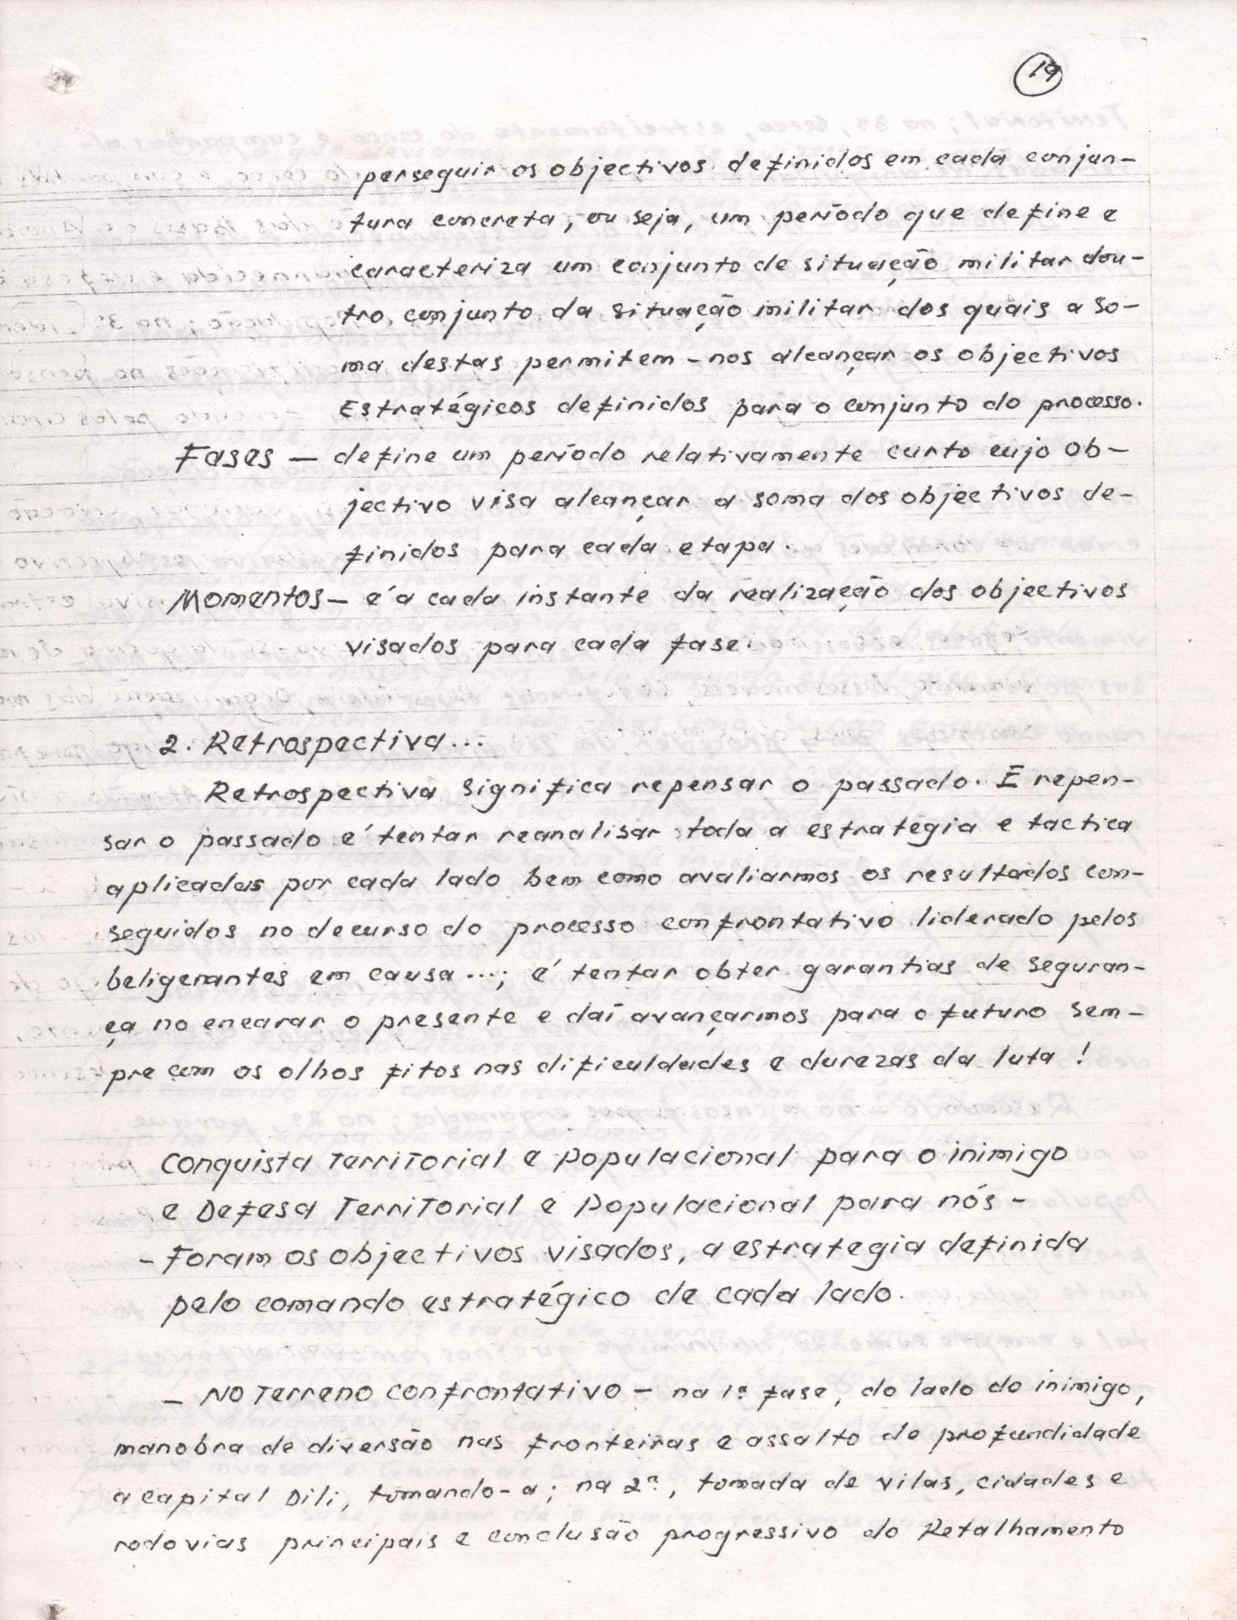 19
perseguir os objectivos definidos em cada conjun-
tura concreta, ou seja, um período que define e
caracteriza um conjunto de situação militar dou-
tro conjunto da situação militar dos quais a so-
ma destas permitem-nos alcançar os objectivos
Estratégicos definidos para o conjunto do processo.
Fases — define um período relativamente curto cujo ob-
jectivo visa alcançar a soma dos objectivos de-
finidos para cada etapa.
Momentos — é a cada instante da realização dos objectivos
visados para cada fase.
2. Retrospectiva...
Retrospectiva significa repensar o passado. E repen-
sar o passado é tentar reanalisar toda a estrategia e tactica
aplicadas por cada lado bem como avaliarmos os resultados con-
seguidos no decurso do processo confrontativo liderado pelos
beligerantes em causa ...; é tentar obter garantias de seguran-
ça no encarar o presente e daí avançarmos para o futuro sem-
pre com os olhos fitos nas dificuldades e durezas da luta!
Conquista Territorial e Populacional para o inimigo
e Defesa Territorial e Populacional para nós -
- Foram os objectivos visados, a estrategia definida
pelo comando estratégico de cada lado.
- No Terreno Confrontativo - na 1ª fase, do lado do inimigo,
manobra de diversão nas fronteiras e assalto de profundidade
a capital Dili, tomando-a; na 2ª, tomada de vilas, cidades e
rodovias principais e conclusão progressivo do Retalhamento